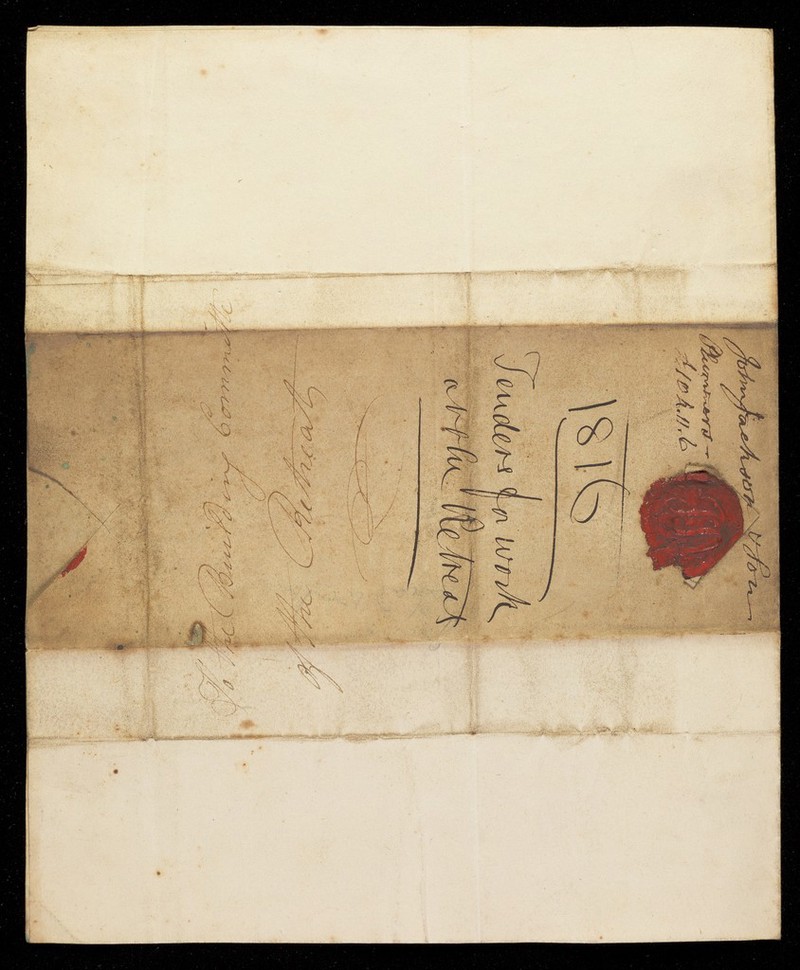 John Jackson & Son
Plummers -
£102.11.6
1816
Tenders for work
at the Retreat
To the Building Committe
of the Retreat